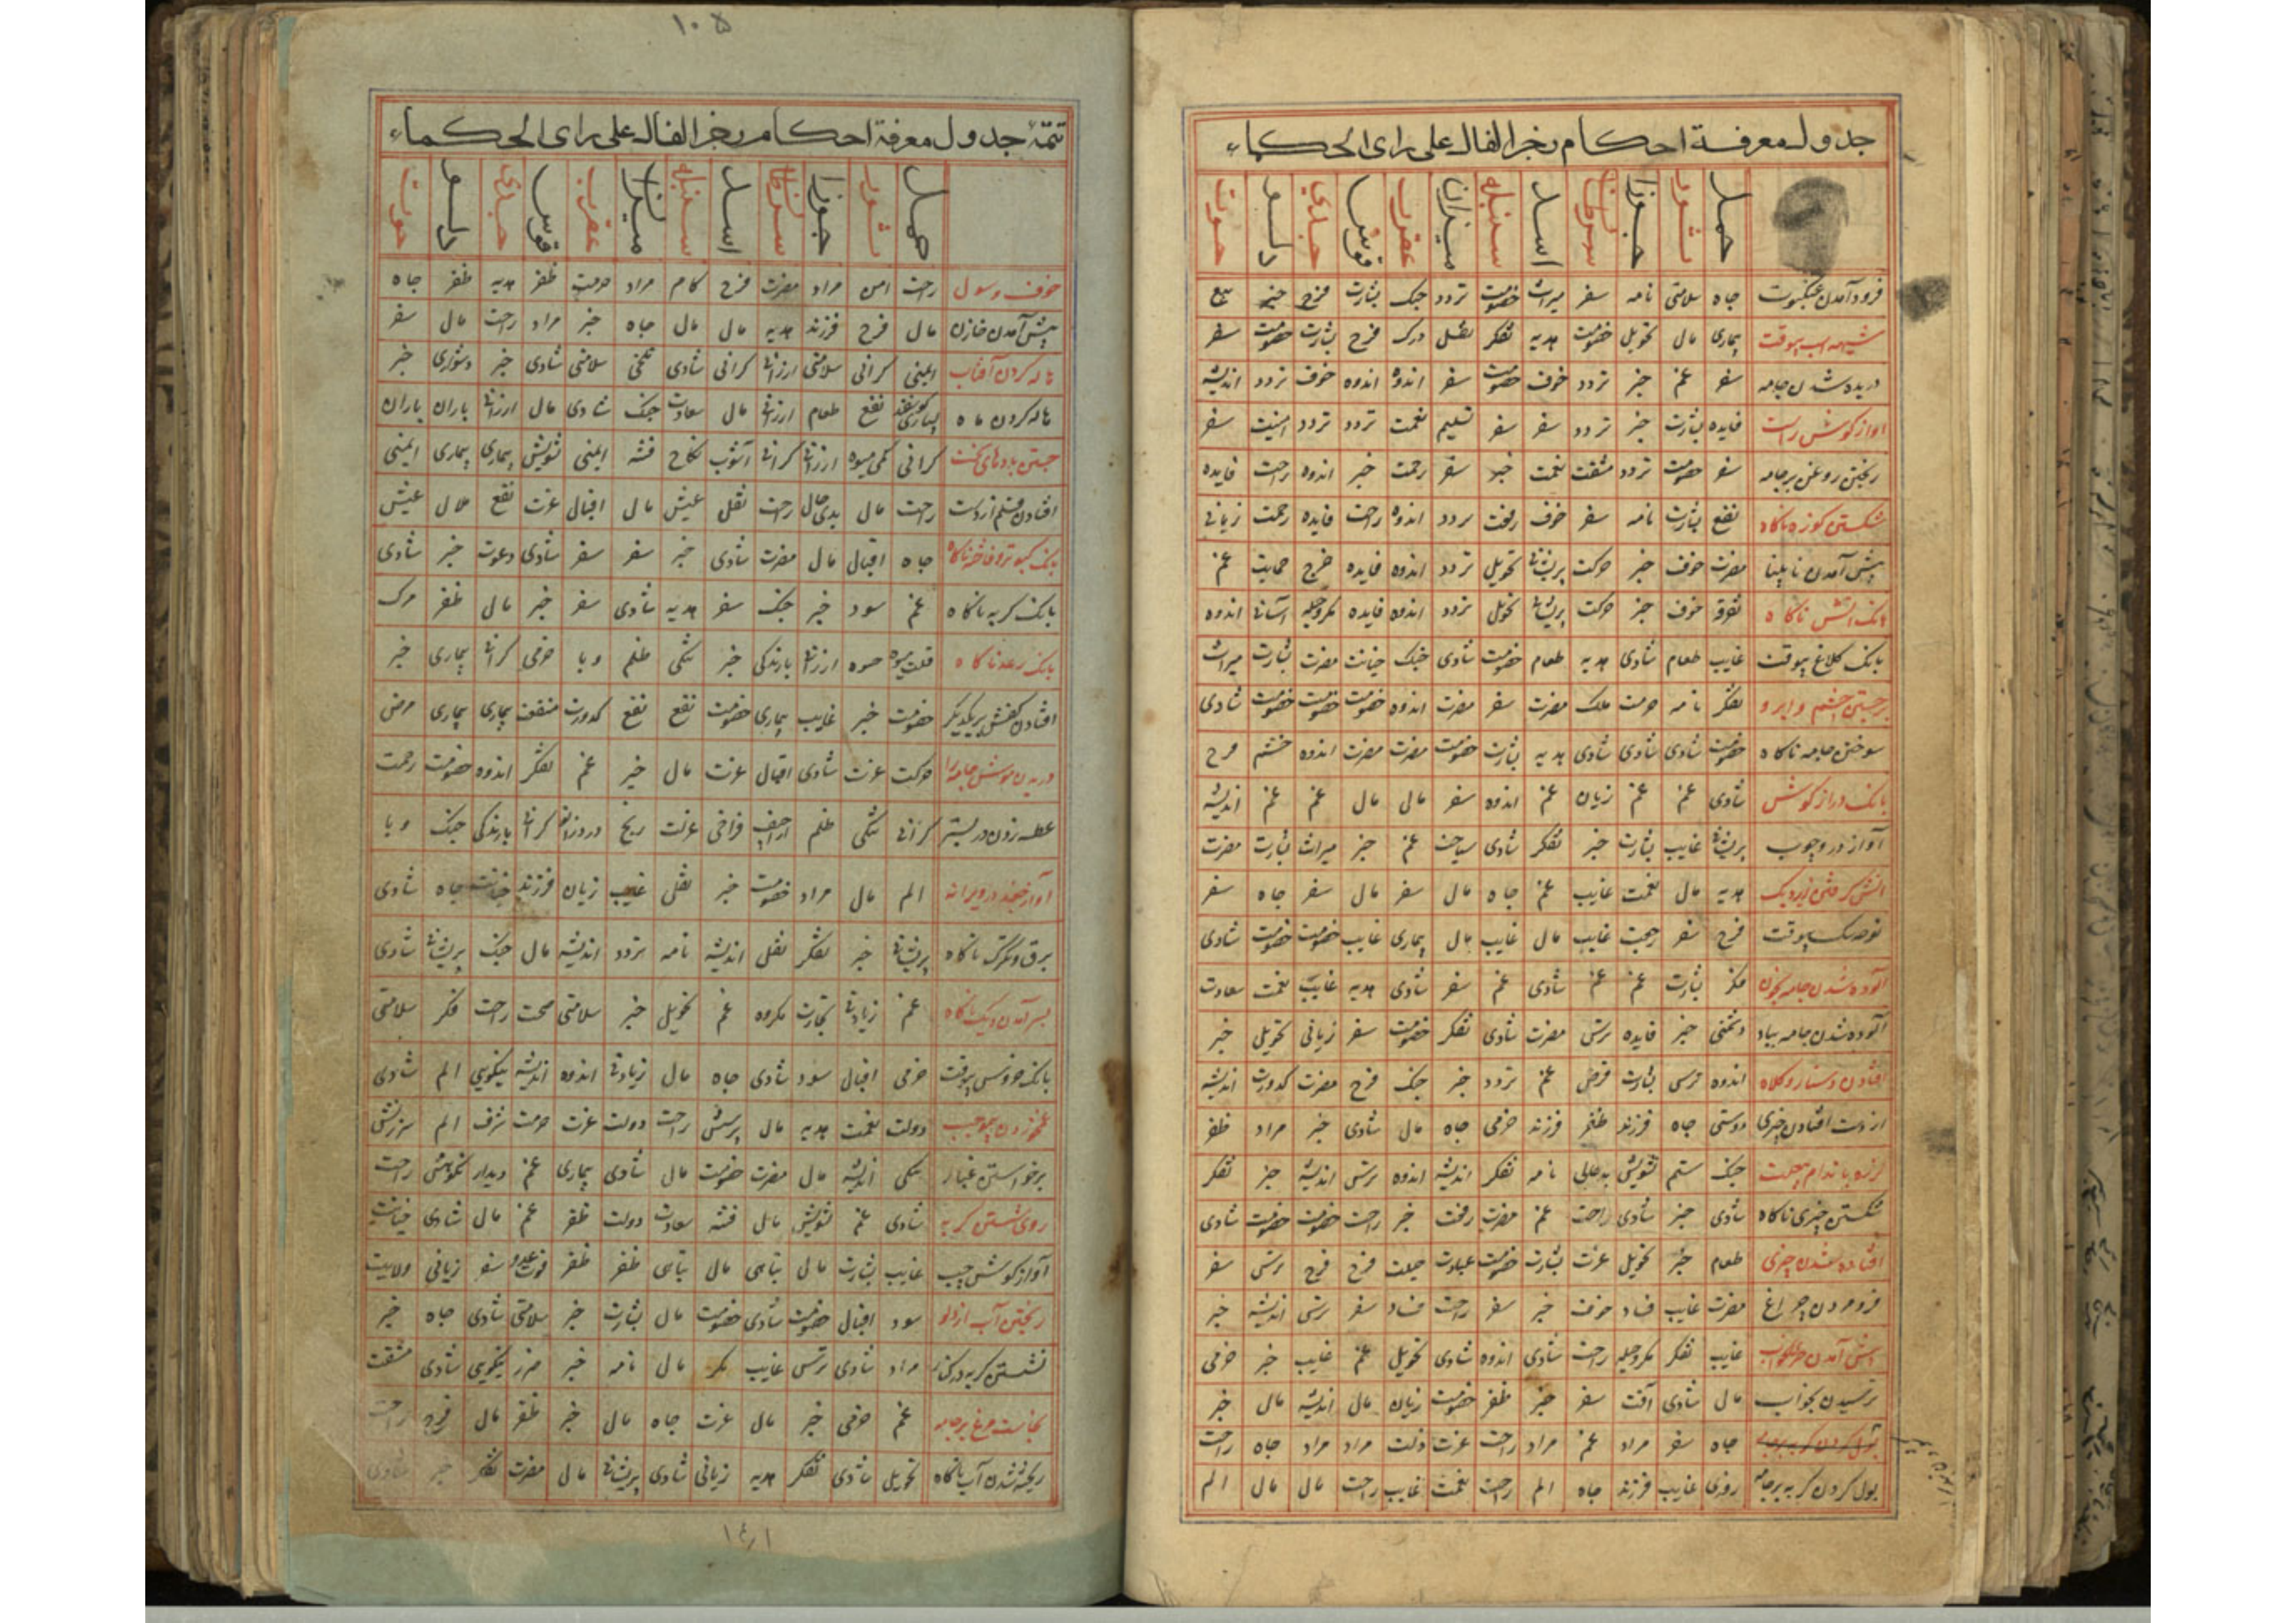 جدول معرفة احكام زجر الفال على راى الحكماء
حمل ثور جوزا سرطان اسد سنبله ميزان عقرب قوس جدي دلو حوت
فرود آمدن عنكبوت جاه سلامتى نامه سفر ميراث خصومت تردد جنك بشارت فرح خبر بيع
شيهه اسب بيوقت بيمارى مال تحويل خصومت هديه تفكر نقل مرك فرح بشارت خصومت سفر
دريده شدن جامه سفر غم خبر تردد خوف خصومت سفر اندوه اندوه خوف تردد انديشه
آواز كوش راست فايده بشارت خبر تردد سفر سفر تسليم نعمت تردد تردد امنيت سفر
ريختن روغن بر جامه سفر خصومت تردد مشقت نعمت خبر سفر رحمت خبر اندوه راحت فايده
شكستن كوزه ناكاه نفع بشارت نامه سفر خوف رفعت تردد اندوه راحت فايده رحمت زيانى
پيش آمدن نابينا مضرت خوف خبر حركت پريشانى تحويل تردد اندوه فايده فرح حمايت غم
بانك آتش ناكاه تفرقه خوف خبر حركت پريشانى تحويل تردد اندوه فايده مكر وحيله آسانى اندوه
بانك كلاغ بيوقت غايب طعام شادى هديه طعام خصومت شادى جنك خيانت مضرت بشارت ميراث
برجستن چشم و ابرو تفكر نامه حرمت ملك مضرت سفر مضرت اندوه خصومت خصومت خصومت شادى
سوختن جامه ناكاه خصومت شادى شادى شادى هديه بشارت خصومت مضرت مضرت اندوه خشم فرح
بانك دراز كوش شادى غم غم زيان غم اندوه سفر مال مال غم غم انديشه
آواز در و چوب پريشانى غايب بشارت خبر تفكر شادى سياحت غم خبر ميراث بشارت مضرت
آتش كرفتن زير ديك هديه مال نعمت غايب غم جاه مال سفر مال سفر جاه سفر
نوحه سك بيوقت فرح سفر غايب مال غايب مال بيمارى غايب خصومت خصومت شادى
آلوده شدن جامه بخون مكر بشارت غم غم شادى غم سفر شادى هديه غايب نعمت سعادت
آلوده شدن جامه دشمنى خبر فايده ترس مضرت شادى تفكر خصومت سفر زيانى تحويل خبر
افتادن دستار و كلاه اندوه ترس بشارت قرض غم تردد خبر جنك فرح مضرت كدورت انديشه
از دست افتادن چيزى دوستى جاه فرزند ظفر فرزند خرمى جاه مال شادى خبر مراد ظفر
لرزه باندام بيعلت جنك ستم تشويش بدحالى نامه تفكر انديشه اندوه ترس انديشه خبر تفكر
شكستن چيزى ناكاه شادى خبر شادى راحت غم مضرت رفعت خبر راحت خصومت خصومت شادى
افتاده شدن چيزى طعام خبر تحويل عزت بشارت خصومت عبادت فرح فرح ترس سفر
فرو مردن چراغ مضرت غايب فساد خوف خبر سفر راحت فساد سفر ترس انديشه خبر
غايب تفكر مكر وحيله راحت شادى اندوه شادى تحويل غم غايب خبر خرمى
ترسيدن بخواب مال شادى آفت سفر خبر ظفر خصومت زيان مال انديشه مال خبر
بول كردن كربه بر جامه جاه سفر مراد غم مراد راحت عزت دولت مراد مراد جاه راحت
بول كردن كربه بر جامه روزى غايب فرزند جاه الم راحت نعمت غايب راحت مال مال الم
١٠٥
تتمّه جدول معرفة احكام زجر الفال على راى الحكماء
حمل ثور جوزا سرطان اسد سنبله ميزان عقرب قوس جدي دلو حوت
راحت امن مراد مضرت فرح كام مراد حرمت ظفر هديه ظفر جاه
پيش آمدن خازن مال فرح فرزند هديه مال مال جاه خبر مراد راحت مال سفر
هاله كردن آفتاب ايمنى كرانى سلامتى ارزانى كرانى شادى تلخى سلامتى شادى خبر دشوارى خبر
هاله كردن ماه نفع طعام ارزانى مال سعادت جنك شادى مال ارزانى باران باران
جستن بادهاى سخت كرانى كمى ميوه ارزانى كرانى آشوب نكاح فتنه ايمنى تشويش بيمارى بيمارى ايمنى
افتادن قلم از دست راحت مال بدى حال راحت نقل عيش مال اقبال عزت نفع ملال عيش
بانك كبوتر و فاخته ناكاه جاه اقبال مال مضرت شادى خبر سفر سفر شادى دعوت خبر شادى
بانك كربه ناكاه غم سود خبر جنك سفر هديه شادى سفر خبر مال ظفر مرك
بانك رعد ناكاه قلت ميوه ارزانى بارندكى خبر تنكى ظلم وبا خرمى كرانى بيمارى خبر
افتادن كفش بر يكديكر خصومت خبر غايب بيمارى خصومت نفع نفع كدورت منفعت بيمارى بيمارى مرض
دريدن موش جامه را حركت عزت شادى اقبال عزت مال خبر غم تفكر اندوه خصومت رحمت
عطسه زدن در بستر كرانى تنكى ظلم اراجيف فراخى عزلت رنج كرانى بارندكى جنك وبا
آواز جغد در ويرانه الم مال مراد خصومت خبر نقل غايب زيان فرزند خيانت جاه شادى
برق و تكرك ناكاه پريشانى خبر تفكر نقل انديشه نامه تردد انديشه مال جنك پريشانى شادى
بسر آمدن ديك ناكاه غم زيادتى تجارت مكروه غم تحويل خبر سلامتى صحت راحت فكر سلامتى
بانك خروس بيوقت خرمى اقبال سود شادى جاه مال زيادتى اندوه انديشه نيكويى الم شادى
دولت نعمت هديه مال پرسش راحت دولت عزت حرمت شرف الم سرزنش
برخواستن غبار تنكى انديشه مال مضرت خصومت مال شادى بيمارى غم ديدار نكوهش راحت
روى شستن كربه شادى غم تشويش مال فتنه سعادت دولت ظفر غم مال شادى خيانت
آواز كوش چپ غايب بشارت مال تباهى مال تباهى ظفر ظفر فوت عدو سفر زيانى ولايت
ريختن آب از دلو سود اقبال خصومت شادى خصومت مال بشارت خبر سلامتى شادى جاه خبر
نشستن كربه در كنار مراد شادى ترس غايب مكر مال نامه خبر ضرر نيكويى شادى مشقت
نجاست مرغ بر جامه غم خرمى خبر مال عزت جاه مال خبر ظفر مال فرح راحت
ريخته شدن آب ناكاه تحويل شادى تفكر هديه زيانى شادى پريشانى مال مضرت تفكر خبر شادى